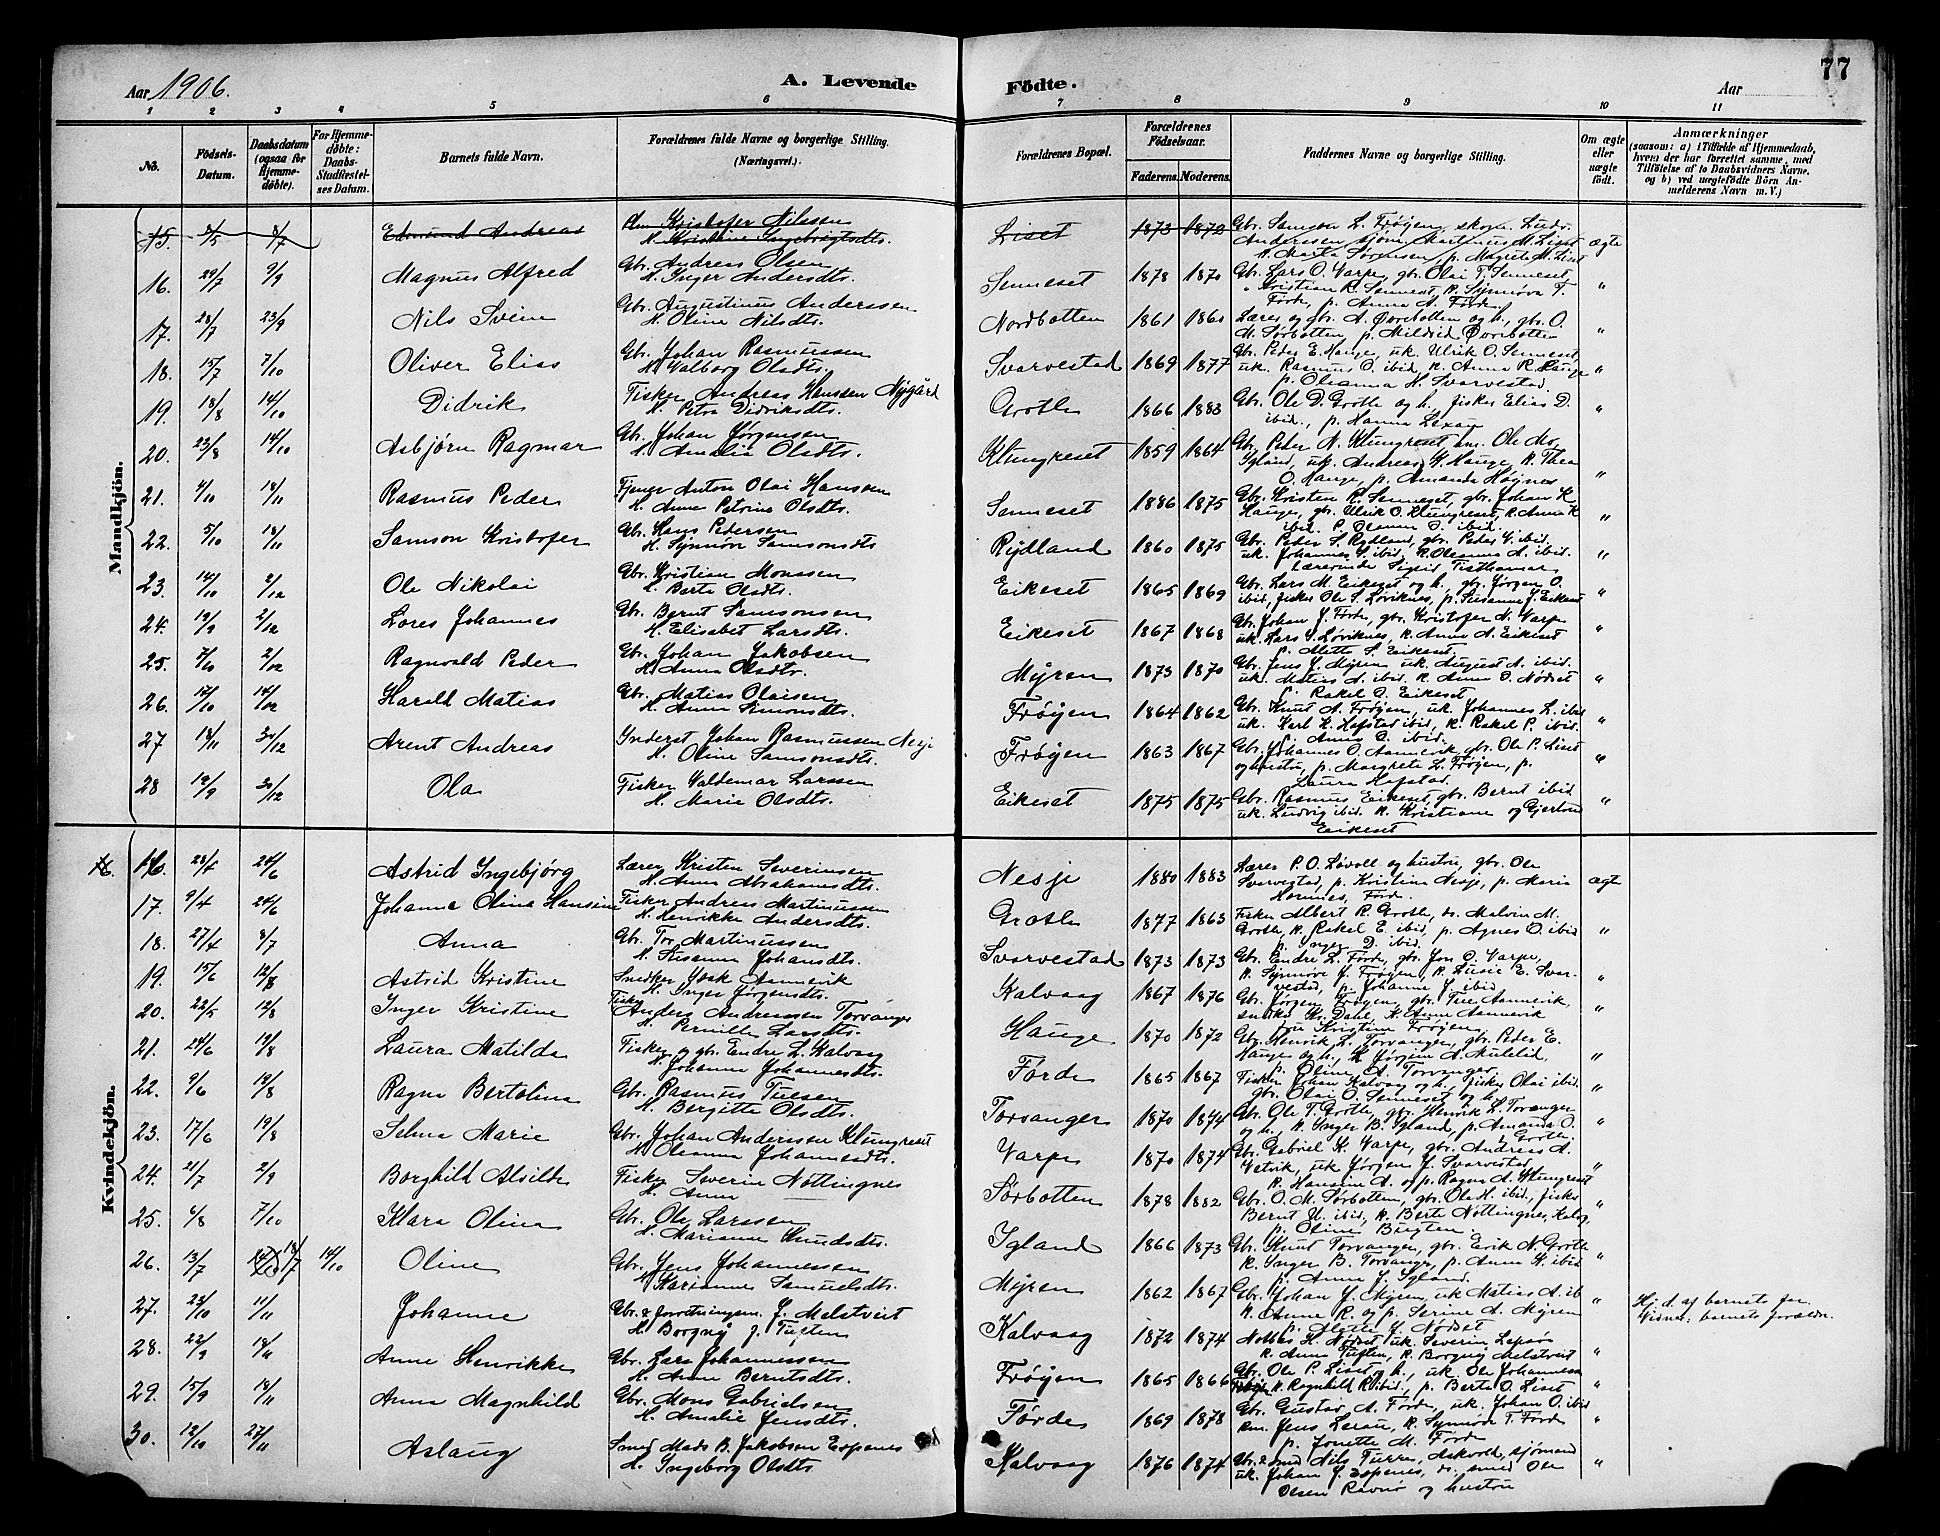 Aar 1906.
A. Levende Födte.
Aar
77
1 2 3 4 5 6 7 8 9 10 11
No.
Födsels-Datum.
Daabsdatum (ogsaa for Hjemmedøbte).
For Hjemmedøbte: Daabs-Stadfæstelses Datum.
Barnets fulde Navn.
Forældrenes fulde Navne og borgerlige Stilling. (Næringsvei.)
Forældrenes Bopæl.
Forældrenes Födselsaar.
Faderens. Moderens.
Faddernes Navne og borgerlige Stilling.
Om ægte eller uægte födt.
Anmærkninger (saasom: a) i Tilfælde af Hjemmedaab, hvem der har forrettet samme, med Tilföielse af to Daabsvidners Navne, og b) ved uægtefødte Börn Anmelderens Navn m. V.)
Mandkjön.
15. 8/7 Edmund Andreas Kristofer Nilssen H. Kristine Ingebrigtsdts. Liset 1873 ægte
16. 29/7 9/9 Magnus Alfred Gbr. Andreas Olsen H. Inger Andersdts. Senneset 1878 1870 Gbr. Lars O. Varpe, gbr. Olai T. Senneset, "
17. 28/7 23/9 Nils Svein Gbr. Augustinus Anderssen H. Oline Nilsdts. Nordbotten 1861 1860 "
18. 15/7 7/10 Oliver Elias Gbr. Johan Rasmussen H. Valborg Olsdts. Svarvestad 1869 1877 Gbr. Peder E. Hauge, uk. Ulrik O. Senneset, uk. Rasmus O. ibid, k. Anna R. Hauge p. Oleanna H. Svarvestad. "
19. 18/8 14/10 Didrik Fisker Andreas Hanssen Nygård H. Petra Didriksdts. Grotle 1866 1883 Gbr. Ole D. Grotle og h., fisker Elias D. ibid., p. Hanna "
20. 23/8 14/10 Asbjørn Ragnar Gbr. Johan Jørgensen H. Amalie Olsdts. Klungreset 1859 1864 Gbr. Peder N. Klungreset, Igland, uk. Andreas K. Hauge, k. Thea O. Hauge, p. Amanda Høynes "
21. 4/10 18/11 Rasmus Peder Tjener Anton Olai Hanssen H. Anne Petrine Olsdts. Senneset 1886 1875 Gbr. Kristen R. Senneset, gbr. Johan K. Hauge, gbr. Ulrik O. Klungreset, k. Anna K. ibid. "
22. 5/10 18/11 Samson Kristofer Gbr. Hans Pedersen H. Synnøve Samsonsdts Rydland 1860 1875 Gbr. Peder S. Rydland, gbr. Peder ibid, uk. Johannes S. ibid, k. Oleanna A. ibid. "
23. 14/10 2/12 Ole Nikolai Gbr. Kristian Monssen H. Berte Olsdts. Eikeset 1865 1869 Gbr. Lars M. Eikeset og h., gbr. Jørgen O. ibid, fisker Ole S. Løviknes, p. Susanne J. Eikeset "
24. 19/9 2/12 Lars Johannes Gbr. Bernt Samsonsen H. Elisabet Larsdts. Eikeset 1867 1868 Gbr. Johan J. Førde, gbr. Kristofer N. Varpe uk. Lars S. Løviknes, k. Anna A. Eikeset p. Alette S. Eikeset. "
25. 7/10 2/12 Ragnvald Peder Gbr. Johan Jakobsen H. Anna Olsdtr. Myren 1873 1870 Gbr. Jens J. Myren, uk. August A. ibid. uk. Matias A. ibid. k. Anna O. Nødset p. Rakel O. Eikeset "
26. 17/10 16/12 Harald Matias Gbr. Matias Olaisen H. Anna Simonsdts. Frøyen 1864 1862 Gbr. Knut A. Frøyen, uk. Johannes L. ibid uk. Karl K. Hofstad ibid, k. Rakel P. ibid. p. Anna O. ibid. "
27 18/11 30/12 Arent Andreas Inderst Johan Rasmussen Nesje H. Oline Samsonsdts. Frøyen 1863 1867 Gbr. Johannes O. Aannevik, gbr. Ole P. Liset og hustru, p. Margrete L. Frøyen, p. Laura Hofstad. "
28 19/9 30/12 Ola Fisker Valdemar Larssen H. Marie Olsdts. Eikeset 1875 1875 Gbr. Rasmus Eikeset, gbr. Bernt ibid uk. Ludvig ibid. k. Kristiane og Gjertrud Eikeset "
Kvindekjön.
16. 23/4 24/6 Astrid Ingebjørg Lærer Kristen Severinsen H. Anna Abrahamsdts. Nesje 1880 1883 Lærer P. O. Løvoll og hustru, gbr. Ole Svarvestad, p. Kristina Nesje, p. Maria Hornnes, Førde. ægte
17. 9/4 24/6 Johanna Olina Hansine Fisker Andreas Martinussen H. Henrikke Andersdts. Grotle 1877 1863 Fisker Albert R. Grotle, do. Malvin M. Grotle, k. Rakel E. ibid, p. Agnes O. ibid p. Inger D. ibid. "
18. 27/4 8/7 Anna Gbr. Tor Martinussen H. Susanna Johansdts. Svarvestad 1873 1873 Gbr. Endre L. Førde, gbr. Jon O. Varpe, k. Synnøve J. Frøyen, k. Lusie E. Svarvestad, p. Johanne J. ibid "
19. 15/6 12/8 Astrid Kristine Snedker Isak Aannevik H. Inger Jørgensdts. Kalvaag 1867 1876 Gbr. Jørgen Frøyen, gbr. Ture Aannevik, snedker Kr. Dahl, k. Anne Aannevik fru Kristine Frøyen "
20. 22/5 12/8 Inger Kristine Fisker Anders Andreassen Torvanger H. Pernille Larsdts. Hauge 1870 1872 Gbr. Henrik L. Torvanger, gbr. Peder E. Hauge og h., k. Jørgine A. Mulelid, p. Oline A. Torvanger "
21. 24/6 19/8 Laura Matilde Fisker og gbr. Endre L. Kalvaag H. Johanne Johannesdts. Førde 1865 1867 Fisker Johan Kalvaag og h., fisker Olai ibid. gbr. Olai O. Senneset og h. "
22. 9/6 19/8 Ragna Bertolina Gbr. Rasmus Tuesen H. Bergitte Olsdts. Torvanger 1870 1874 Gbr. Ole T. Grotle, gbr. Henrik L. Torvanger og h., k. Inger B. Igland, p. Amanda O. Grotle. "
23. 17/6 19/8 Selma Marie Gbr. Johan Anderssen Klungreset H. Oleanna Johannesdts. Varpe 1870 1874 Gbr. Gabriel K. Varpe, gbr. Andreas A. Vetvik, uk. Jørgen J. Svarvestad k. Hansine A. og p. Ragna A. Klungreset "
24. 21/7 2/9 Borghild Alvilde Fisker Severin Nøttingnes H. Anna Sørbotten 1878 1882 Gbr. O. M. Sørbotten, gbr. Ole H. ibid, fisker Bernt U. ibid, k. Berte Nøttingnes, Kalvg. p. Oline Bugten. "
25. 4/8 7/10 Klara Olina Gbr. Ole Larssen H. Marianne Knudsdts. Igland 1866 1873 Gbr. Knut Torvanger, gbr. Erik N. Grotle k. Inger B. Torvanger, p. Anna K. ibid p. Anna J. Igland. "
26. 13/7 18/7 14/10 Oline Gbr. Jens Johannessen H. Karianne Samuelsdts. Myren 1862 1867 Gbr. Johan J. Myren, uk Matias A. ib k. Anne R. og p. Serine A. Myren p. Alette Y. Nødset " Hj. d. af barnets far. Vidner: barnets foreldre.
27. 23/10 11/11 Johanne Gbr. & forretningsm. J. Melstveit H. Borgny J. Tuften Kalvaag 1872 1874 Nottas H. Nødset, uk. Severin k. Anna Tuften, k. Borgny Melstveit "
28. 22/9 18/11 Anne Henrikke Gbr. Lars Johannessen H. Anne Berntsdts. Frøyen 1865 1866 Gbr. Ole P. Liset og h., uk. Ole Johannessen k. Ragnhild R. ibid, p. Berte O. Liset "
29. 15/9 18/11 Anna Magnhild Gbr. Mons Gabrielsen H. Amalie Jensdts. Førde 1869 1878 Gbr. Gustav A. Førde, uk. Johan O. ibid Jens k. Synnøve T. Førde p. Jonette M. Førde "
30. 12/10 27/11 Aslaug Smed Mads B. Jakobsen Espenes H. Ingeborg Olsdts. Kalvaag 1876 1874 Gbr. & smed Nils Furre, Askvold, sjømand uk. Johan J. Espenes, do. smed Ole Olsen Ravnø og hustru "